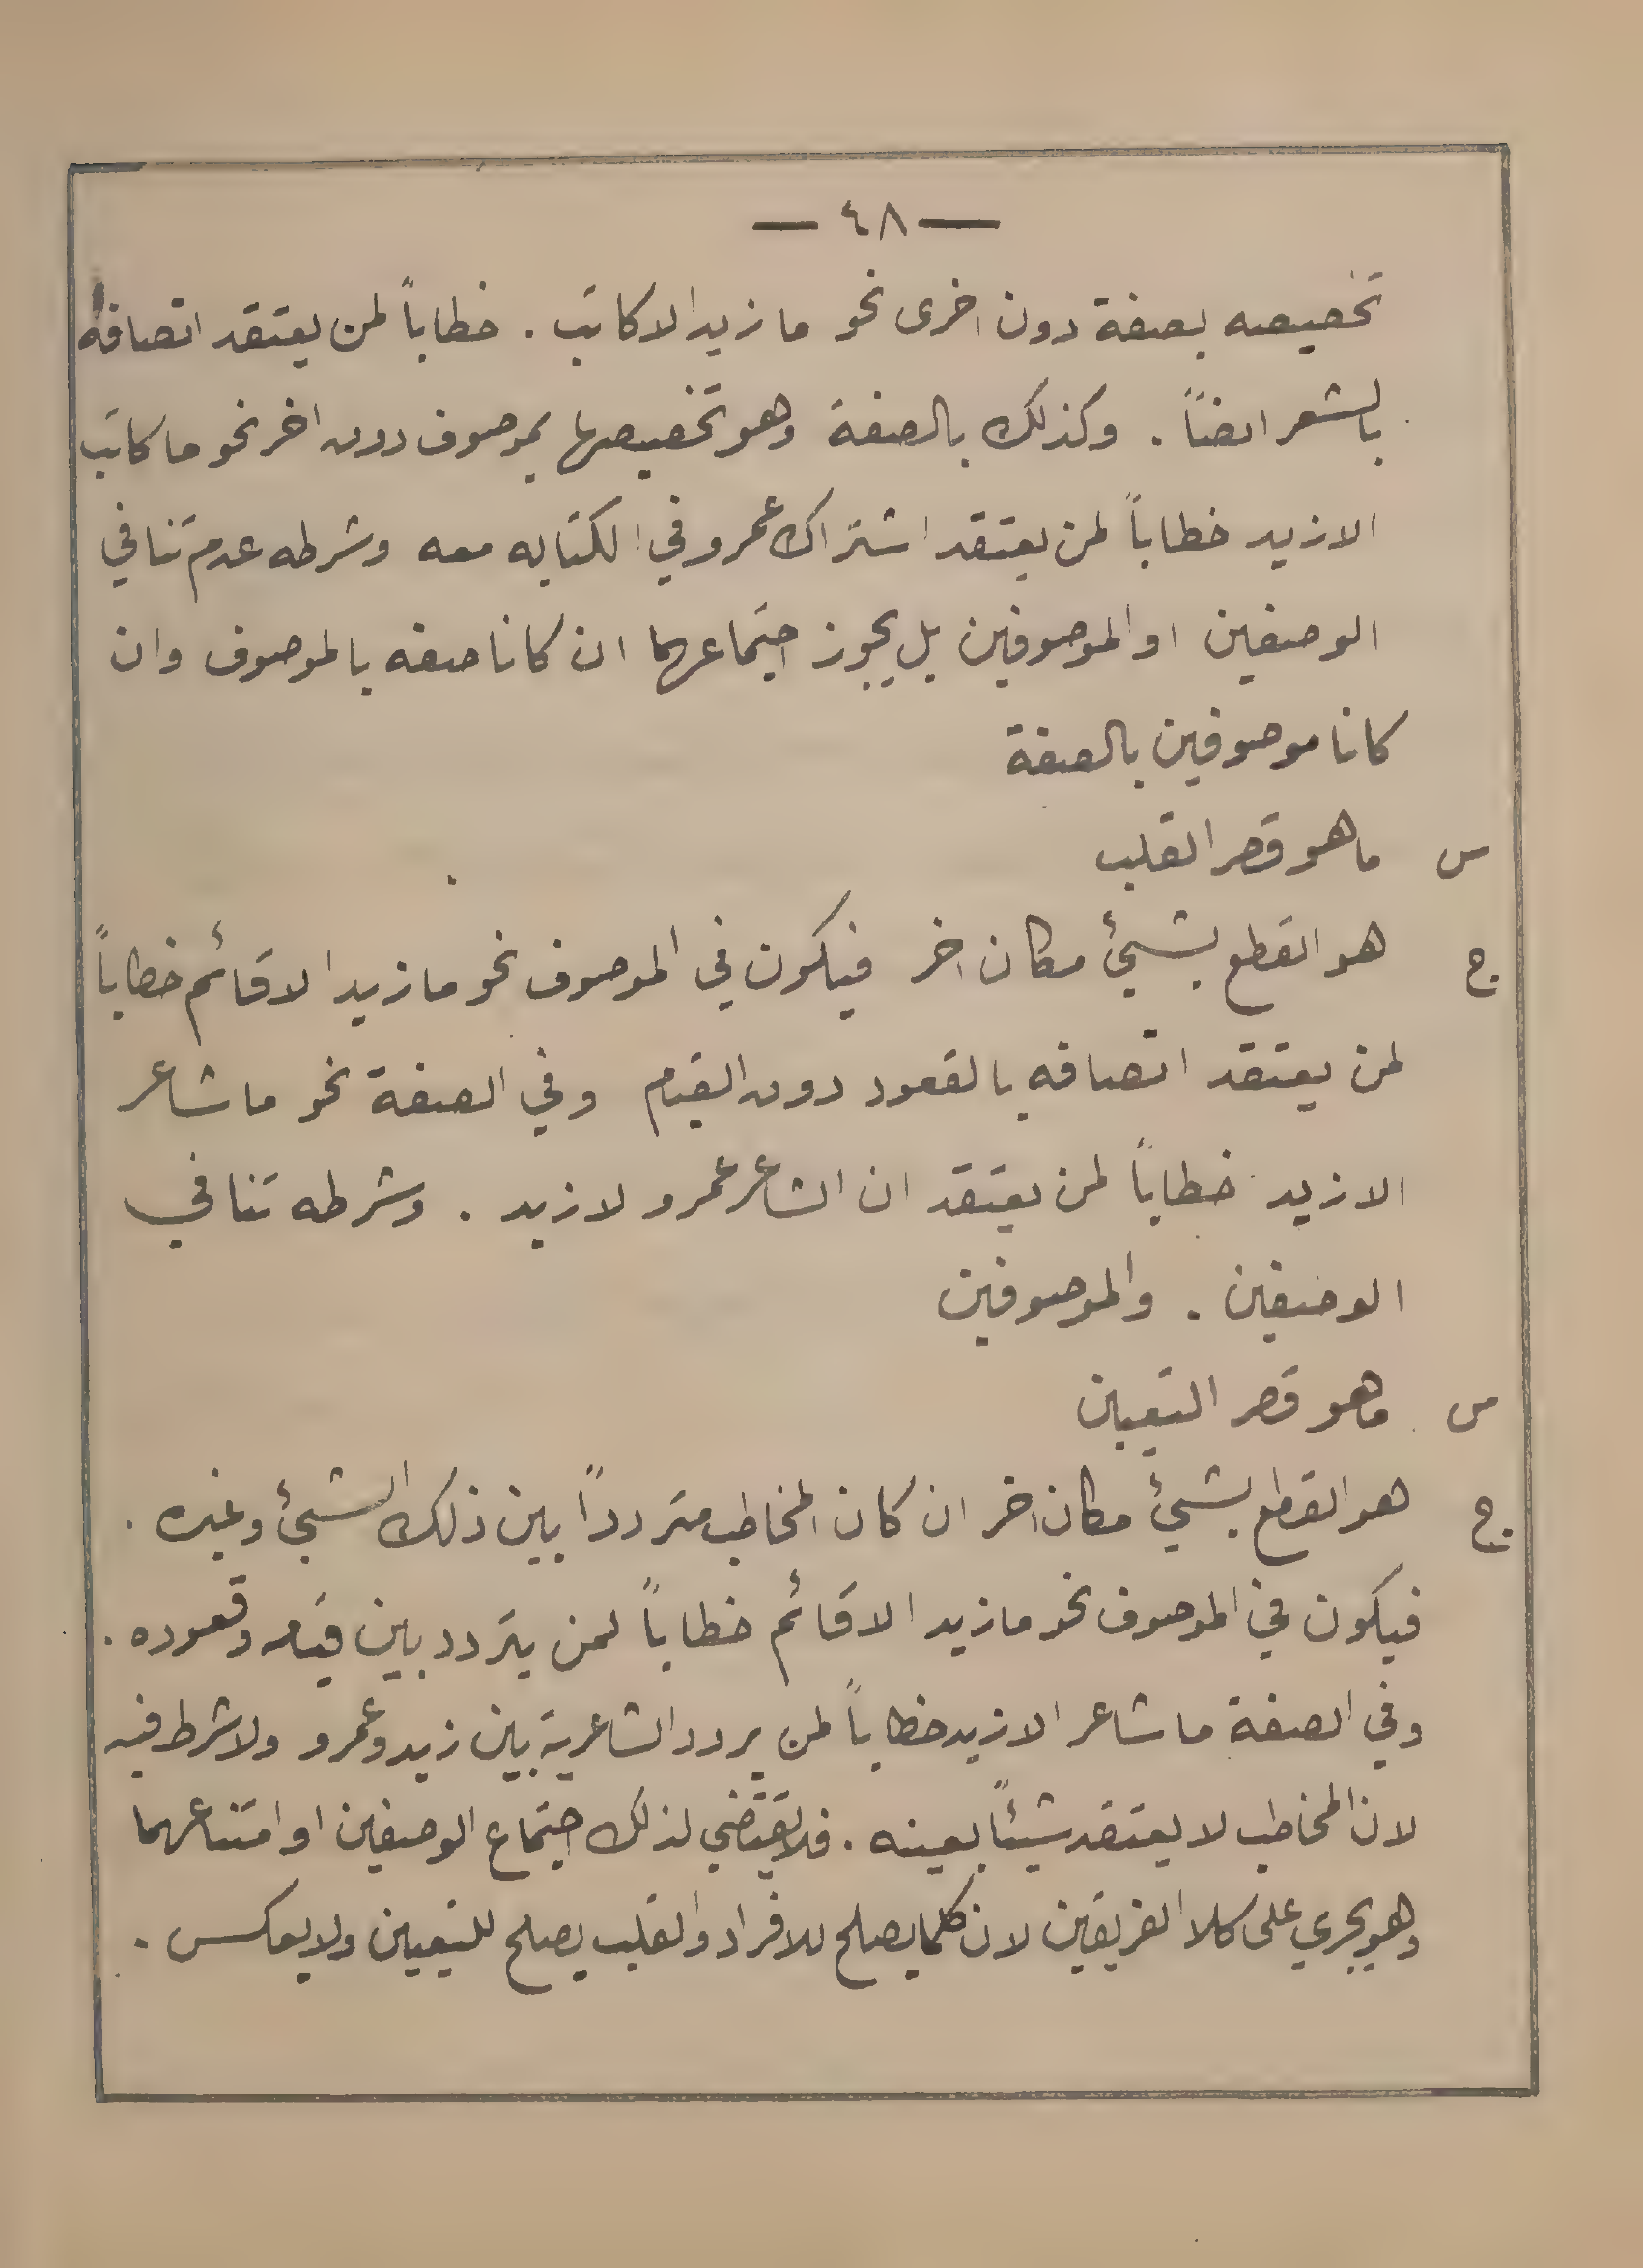 — ٤٨ —
تخصيصه بصفة دون اخرى نحو ما زيد الا كاتب . خطاباً لمن يعتقد اتصافه
بالشعر ايضاً . وكذلك بالصفة وهو تخصيصها بموصوف دون اخر نحو ما كاتب
الا زيد خطاباً لمن يعتقد اشتراك عمرو في الكتابه معه وشرطه عدم تنافي
الوصفين او الموصوفين بل يجوز اجتماعهما ان كانا صفه بالموصوف وان
كانا موصوفين بالصفة
س ما هو قصر القلب
ج هو القطع بشيئ مكان اخر فيكون في الموصوف نحو ما زيد الا قائم خطاباً
لمن يعتقد اتصافه بالقعود دون القيام وفي الصفة نحو ما شاعر
الا زيد خطاباً لمن يعتقد ان الشاعر عمرو لا زيد . وشرطه تنافي
الوصفين . والموصوفين
س ما هو قصر التعيين
ج هو القطع بشيئ مكان اخر ان كان المخاطب متردداً بين ذلك الشيئ وغيره .
فيكون في الموصوف نحو ما زيد الا قائم خطاباً لمن يتردد بين قيامه وقعوده .
وفي الصفة ما شاعر الا زيد خطاباً لمن يردد الشاعرية بين زيد وعمرو ولا شرط فيه
لان المخاطب لا يعتقد شيئاً بعينه . فلا يقتضي لذلك اجتماع الوصفين او امتناعهما
وهو يجري على كلا الفريقين لان كلما يصلح للافراد والقلب يصلح للتعيين ولا يعكس .